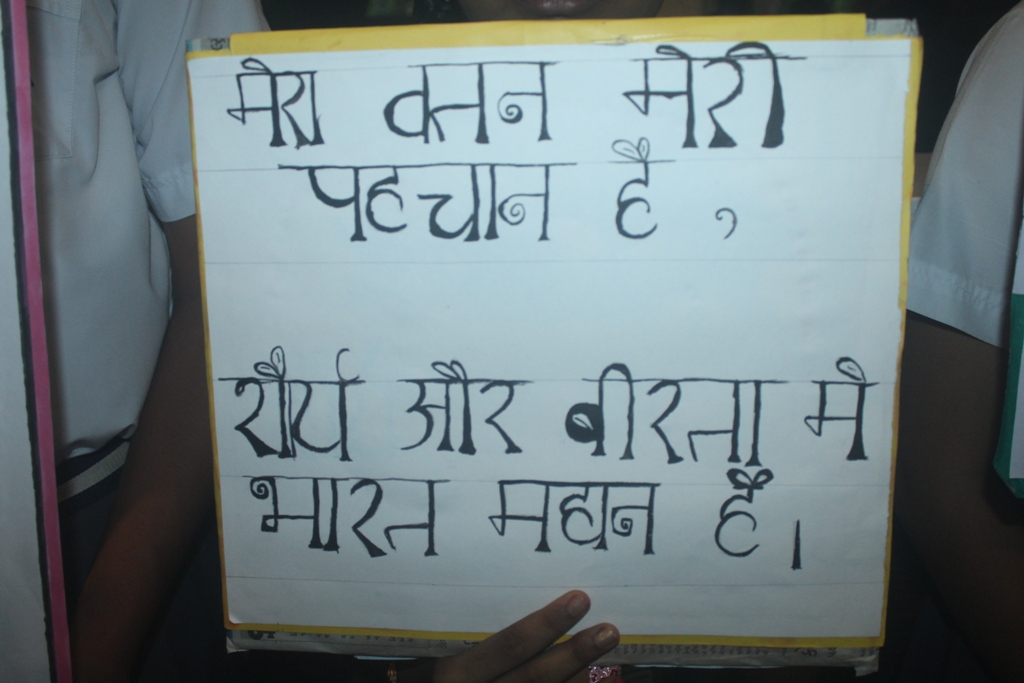 मेरा वतन मेरी
पहचान है,
शौर्य और वीरता मे
भारत महान है।